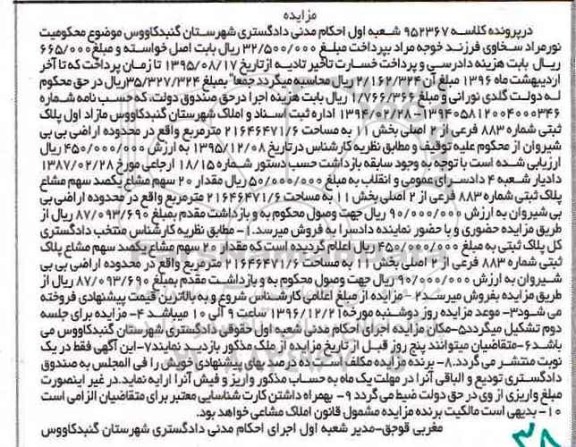 مزایده
درپرونده کلاسه ۹۵۲۳۶۷ شعبه اول احکام مدنی دادگستری شهرستان گنبدکاووس موضوع محکومیت
نورمراد سخاوی فرزند خوجه مراد بپرداخت مبلغ ۳۲/۵۰۰/۰۰۰ ریال بابت اصل خواسته و مبلغ ۶۶۵/۰۰۰
ریال بابت هزینه دادرسی و پرداخت خسارت تاخیر تادیه ازتاریخ ۱۳۹۵/۰۸/۱۷ تا زمان پرداخت که تا آخر
اردیبهشت ماه ۱۳۹۶ مبلغ آن ۲/۱۶۲/۳۲۴ ریال محاسبه میگردد جمعا" بمبلغ ۳۵/۳۲۷/۳۲۴ریال در حق محکوم
له دولت گلدی نورانی و مبلغ ۱/۷۶۶/۳۶۶ ریال بابت هزینه اجرا درحق صندوق دولت، که حسب نامه شماره
۱۳۹۴۰۵۸۱۲۰۰۴۰۰۰۳۴۶-۱۳۹۴/۰۲/۲۸ اداره ثبت اسناد و املاک شهرستان گنبدکاووس مازاد اول پلاک
ثبتی شماره ۸۸۳ فرعی از ۲ اصلی بخش ۱۱ به مساحت ۲۱۶۴۶۴۷۱/۶ مترمربع واقع در محدوده اراضی بی بی
شیروان از محکوم علیه توقیف و مطابق نظریه کارشناس درتاریخ ۱۳۹۵/۱۲/۰۸ به ارزش ۴۵۰/۰۰۰/۰۰۰ ریال
ارزیابی شده است با توجه به وجود سابقه بازداشت حسب دستور شماره ۱۸/۱۵ ارجاعی مورخ ۱۳۸۷/۰۲/۲۸
دادیار شعبه ۴ دادسرای عمومی و انقلاب به مبلغ ۵۰/۰۰۰/۰۰۰ ریال مقدار ۲۰ سهم مشاع یکصد سهم مشاع
پلاک ثبتی شماره ۸۸۳ فرعی از ۲ اصلی بخش ۱۱ به مساحت ۲۱۶۴۶۴۷۱/۶ مترمربع واقع در محدوده اراضی بی
بی شیروان به ارزش ۹۰/۰۰۰/۰۰۰ ریال جهت وصول محکوم به و بازداشت مقدم بمبلغ ۸۷/۰۹۳/۶۹۰ ریال از
طریق مزایده حضوری و با حضور نماینده دادسرا به فروش میرسد.۱- مطابق نظریه کارشناس منتخب دادگستری
کل پلاک ثبتی به مبلغ ۴۵۰/۰۰۰/۰۰۰ ریال اعلام گردیده است که مقدار ۲۰ سهم مشاع یکصد سهم مشاع پلاک
ثبتی شماره ۸۸۳ فرعی از ۲ اصلی بخش ۱۱ به مساحت ۲۱۶۴۶۴۷۱/۶ مترمربع واقع در محدوده اراضی بی بی
شیروان به ارزش ۹۰/۰۰۰/۰۰۰ ریال جهت وصول محکوم به و بازداشت مقدم بمبلغ ۸۷/۰۹۳/۶۹۰ ریال از
طریق مزایده بفروش میرسد۲- مزایده از مبلغ اعلامی کارشناس شروع و به بالاترین قیمت پیشنهادی فروخته
می شود۳- موعد مزایده روز دوشنبه مورخه۱۳۹۶/۱۲/۲۱ ساعت ۹ الی ۱۰ میباشد ۴- مزایده برای جلسه
دوم تشکیل میگردد۵-مکان مزایده اجرای احکام مدنی شعبه اول حقوقی دادگستری شهرستان گنبدکاووس می
باشد۶-متقاضیان میتوانند پنج روز قبل از تاریخ مزایده از ملک مذکور بازدید نمایند۷-این آگهی فقط در یک
نوبت منتشر می گردد.۸- برنده مزایده مکلف است ده درصد بهای پیشنهادی خویش را فی المجلس به صندوق
دادگستری تودیع و الباقی آنرا در مهلت یک ماه به حساب مذکور واریز و فیش آنرا ارایه نماید.در غیر اینصورت
مبلغ واریزی از وی در حق دولت ضبط می گردد ۹- بهمراه داشتن کارت شناسایی معتبر برای متقاضیان الزامی است
۱۰- بدیهی است مالکیت برنده مزایده مشمول قانون املاک مشاعی خواهد بود.
مغربی قوجق-مدیر شعبه اول اجرای احکام مدنی دادگستری شهرستان گنبدکاووس